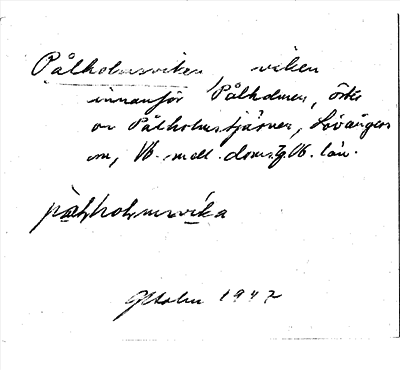 Pålholmsviken viken
innanför Pålholmen, öster
om Pålholmstjärnen, Lövångers
sn, Vb. mell. doms. Vb. län.
pålholmsvika
Holm 1947